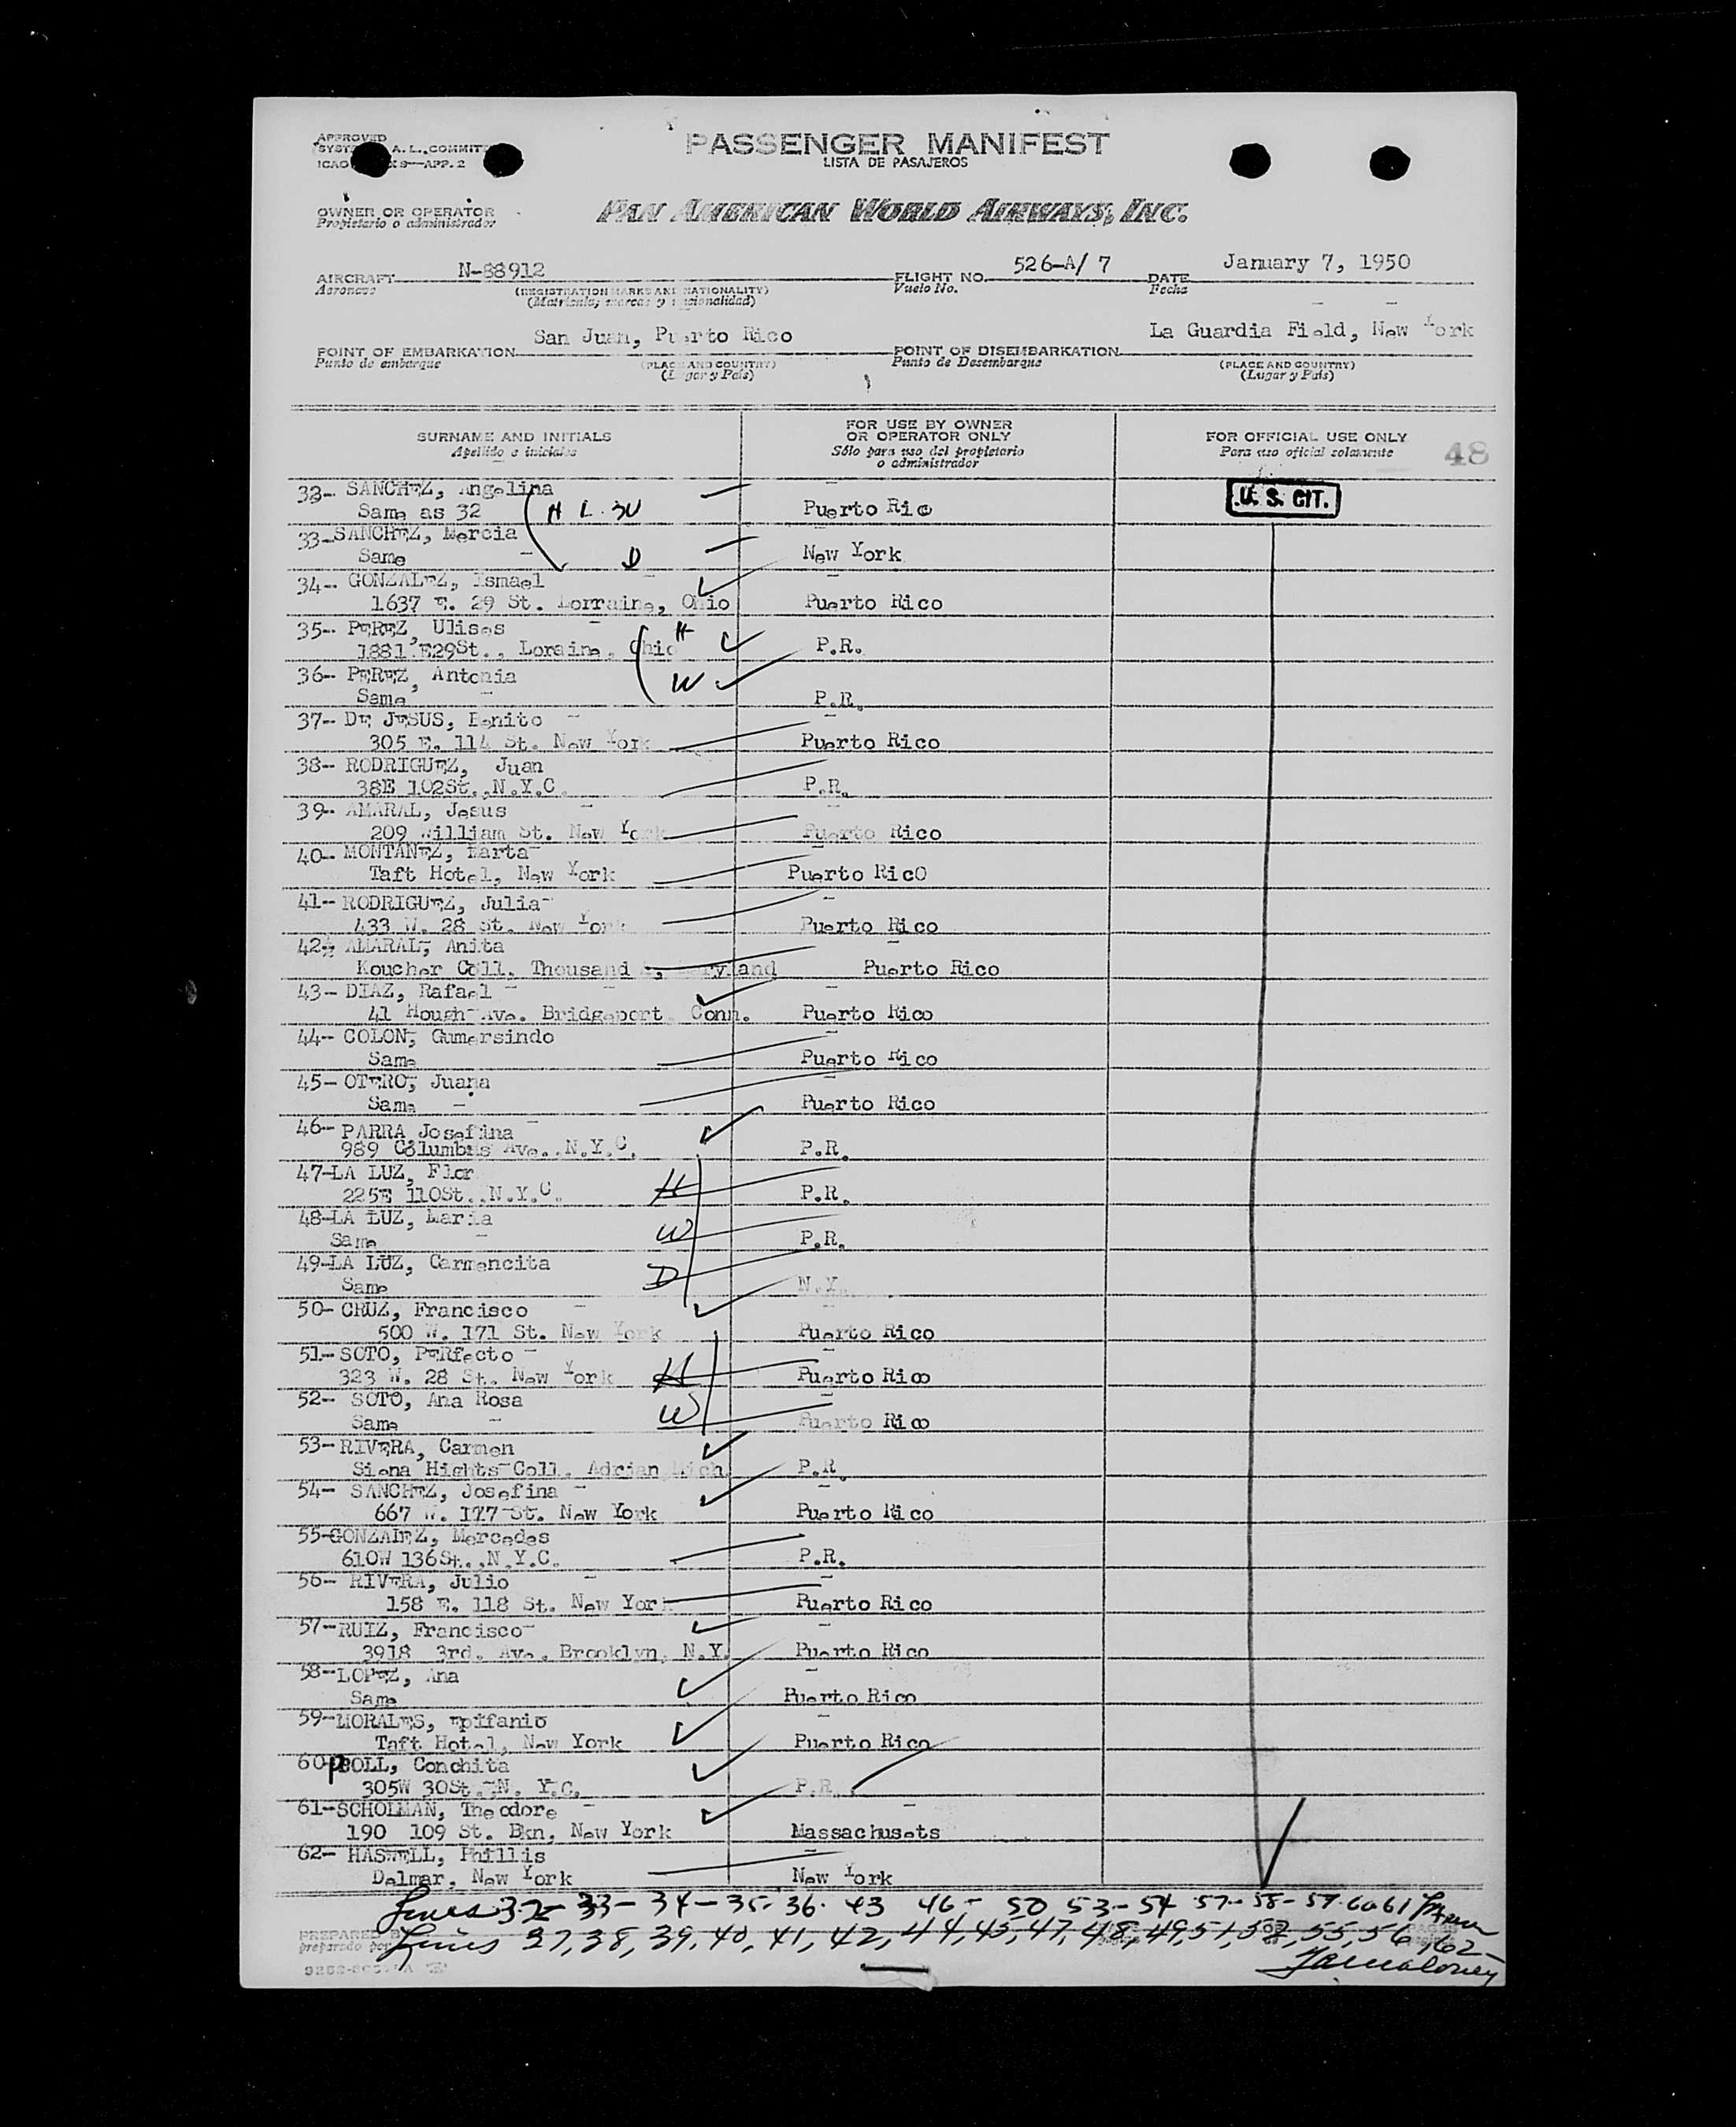 APPROVED
A. L. COMMIT
ICAO 9—APP. 2
PASSENGER MANIFEST
LISTA DE PASAJEROS
OWNER OR OPERATOR
Propietario o administrador
PAN AMERICAN WORLD AIRWAYS, INC.
AIRCRAFT N-88912 FLIGHT NO. 526-A/ 7 DATE January 7, 1950
Aeronave (REGISTRATION MARKS AND NATIONALITY) Vuelo No. Fecha
(Matrícula, marcas y nacionalidad)
POINT OF EMBARKATION San Juan, Puerto Rico POINT OF DISEMBARKATION La Guardia Field, New York
Punto de embarque (PLACE AND COUNTRY) Punto de Desembarque (PLACE AND COUNTRY)
(Lugar y País) (Lugar y País)
SURNAME AND INITIALS FOR USE BY OWNER OR OPERATOR ONLY FOR OFFICIAL USE ONLY 48
Apellido e iniciales Sólo para uso del propietario o administrador Para uso oficial solamente
32-- SANCHEZ, Angelina
Same as 32 Puerto Rico U. S. CIT.
33-SANCHEZ, Mercia
Same D New York
34-- GONZALEZ, Ismael
1637 E. 29 St. Lorraine, Ohio Puerto Rico
35-- PEREZ, Ulises H
1881 E29St., Loraine, Ohio P.R.
36-- PEREZ, Antonia W
Same P.R.
37-- DE JESUS, Benito
305 E. 114 St. New York Puerto Rico
38-- RODRIGUEZ, Juan
38E 102St., N.Y.C. P.R.
39-- AMARAL, Jesus
209 William St. New York Puerto Rico
40-- MONTANEZ, Marta
Taft Hotel, New York Puerto RicO
41-- RODRIGUEZ, Julia
433 W. 28 St. New York Puerto Rico
42-- AMARAL, Anita
Koucher Coll. Thousand Maryland Puerto Rico
43-- DIAZ, Rafael
41 Hough Ave. Bridgeport Conn. Puerto Rico
44-- COLON, Gumersindo
Same Puerto Rico
45-- OTERO, Juana
Same Puerto Rico
46-- PARRA Josefina
989 Columbus Ave., N.Y.C. P.R.
47-LA LUZ, Flor
225E 110St., N.Y.C. H P.R.
48-LA LUZ, Maria
Same W P.R.
49-LA LUZ, Carmencita
Same D N.Y.
50- CRUZ, Francisco
500 W. 171 St. New York Puerto Rico
51-- SOTO, PERfecto
323 W. 28 St. New York H Puerto Rico
52-- SOTO, Ana Rosa
Same W Puerto Rico
53-- RIVERA, Carmen
Siena Hights Coll. Adrian Mich. P.R.
54-- SANCHEZ, Josefina
667 W. 177 St. New York Puerto Rico
55-GONZALEZ, Mercedes
610W 136St., N.Y.C. P.R.
56-- RIVERA, Julio
158 E. 118 St. New York Puerto Rico
57--RUIZ, Francisco
3918 3rd. Ave. Brooklyn, N.Y. Puerto Rico
58--LOPEZ, Ana
Same Puerto Rico
59--MORALES, Epifanio
Taft Hotel, New York Puerto Rico
60-POLL, Conchita
305W 30St. N. Y.C. P.R.
61--SCHOLMAN, Theodore
190 109 St. Bkn, New York Massachusets
62-- HASWELL, Phillis
Delmar, New York New York
Lines 32- 33- 34- 35- 36. 43 46- 50 53- 54 57- 58- 59. 60 61
PREPARED BY Lines 37, 38, 39, 40, 41, 42, 44, 45, 47, 48, 49, 51, 52, 55, 56, 62-
preparado por